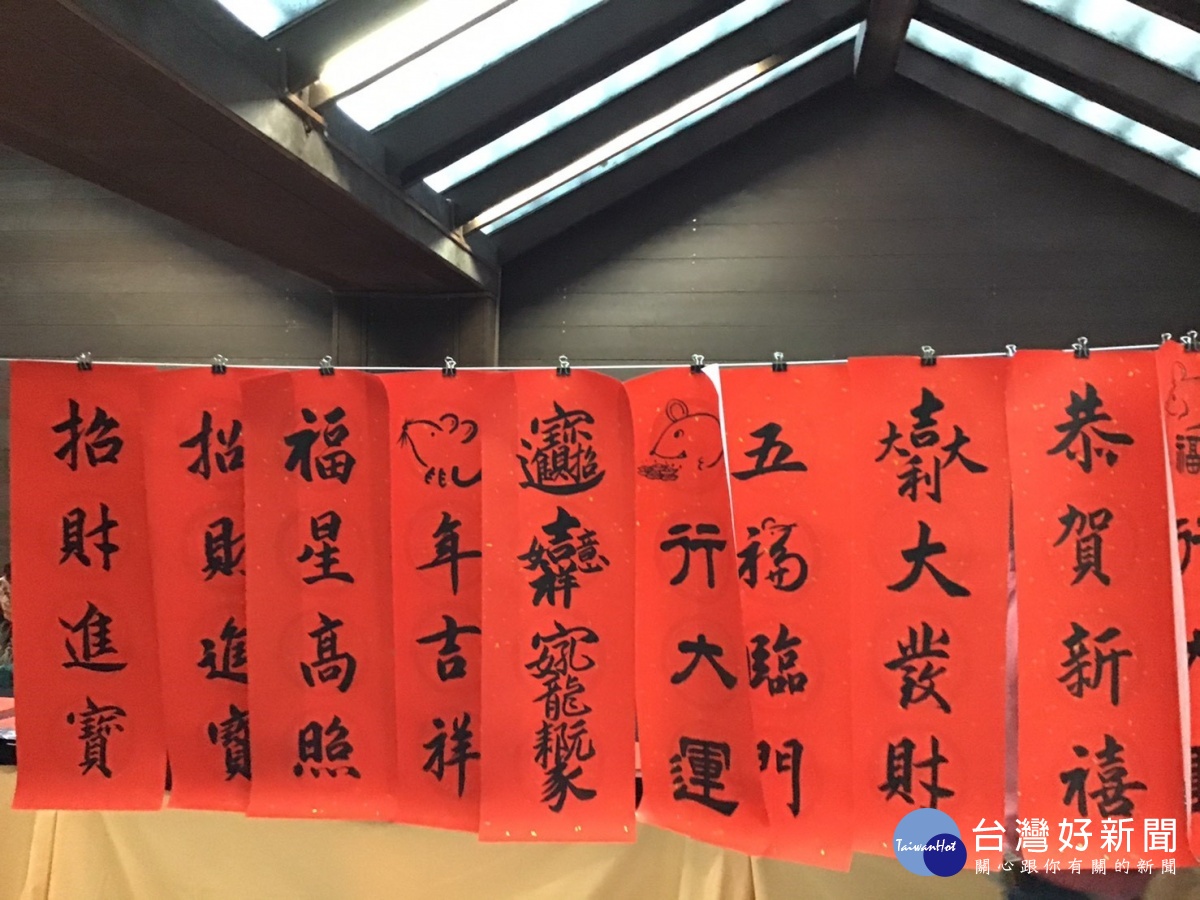 招財進寶
招財進寶
福星高照
年吉祥
招財進寶
吉祥如意
行大運
五福臨門
大吉大利大發財
恭賀新禧
福行
TaiwanHot
台灣好新聞
關心跟你有關的新聞